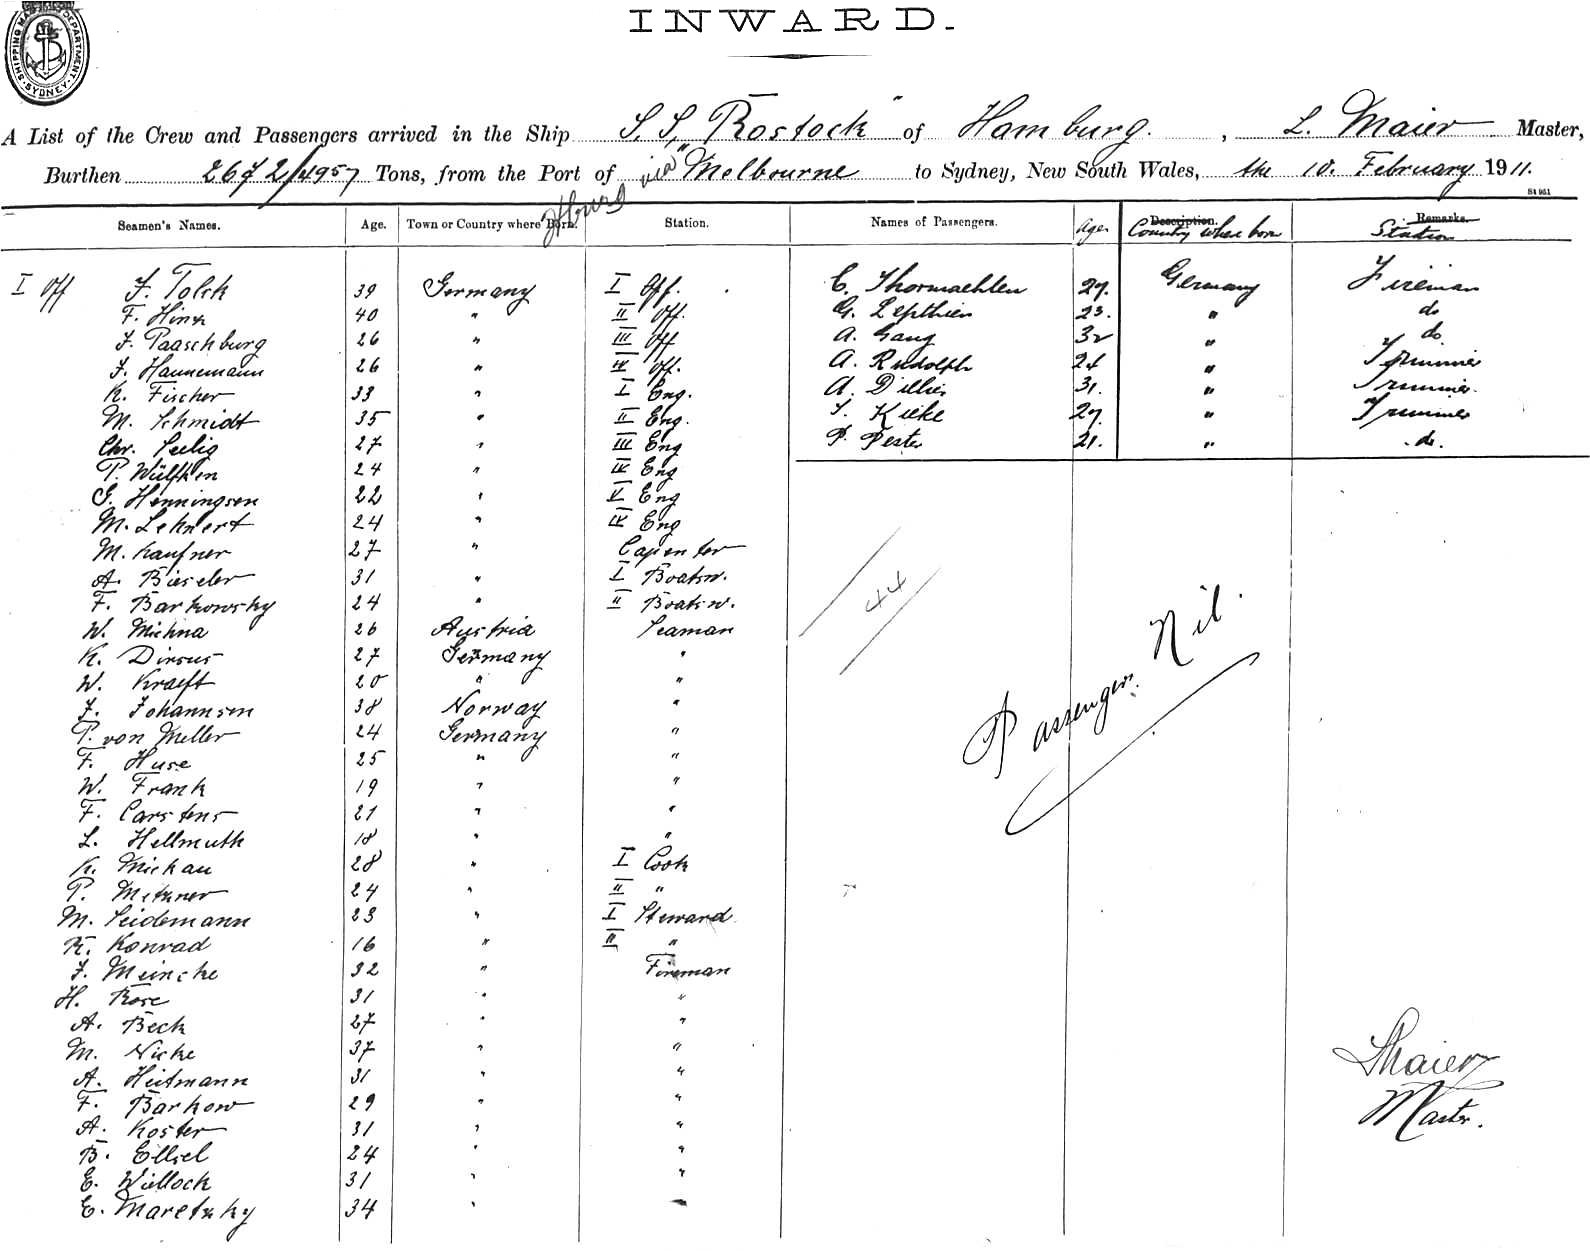 SHIPPING MASTER'S DEPARTMENT. SYDNEY.
INWARD.
A List of the Crew and Passengers arrived in the Ship S. S. "Rostock" of Hamburg. , L. Maier Master,
Burthen 2672/4957 Tons, from the Port of Hburg via Melbourne to Sydney, New South Wales, the 10. February 1911.
St 951
Seamen's Names. Age. Town or Country where Born. Station. Names of Passengers. Age. Description. Country where born Remarks. Station
I Off J. Tolck 39 Germany I Off. C. Thormaehlen 27. Germany Fireman
F. Hinz 40 " II Off. G. Lepthien 23. " do
J. Paaschburg 26 " III Off A. Gang 32 " do.
J. Hannemann 26 " IV Off. A. Rudolph 24 " Trimmer
K. Fischer 33 " I Eng. A. Dillier 31. " Trimmer.
M. Schmidt 35 " II Eng. Kieke 27. " Trimmer
Chr. Seelig 27 " III Eng P. Pester 21. " do.
P. Wülfken 24 " IV Eng
G. Henningsen 22 " V Eng
M. Lehnert 24 " IV Eng
M. Kaufner 27 " Capenter
A. Bieseler 31 " I Boatsw.
F. Barkowsky 24 " II Boatsw.
W. Michna 26 Austria Seaman
K. Dirsus 27 Germany "
W. Kraeft 20 " "
J. Johannsen 38 Norway "
P. von Meller 24 Germany "
F. Huse 25 " "
W. Frank 19 " "
F. Carstens 21 " "
L. Hellmuth 18 " "
K. Mickau 28 " I Cook
P. Metzner 24 " II "
M. Seidemann 23 " I Steward
R. Konrad 16 " II "
J. Meincke 32 " Fireman
H. Rose 31 " "
A. Beck 27 " "
M. Nicke 37 " "
A. Heitmann 31 " "
F. Barkow 29 " "
A. Koster 31 " "
B. Ellsel 24 " "
E. Willock 31 " "
E. Maretzky 34 " "
44
Passengers. Nil.
LMaier
Master.